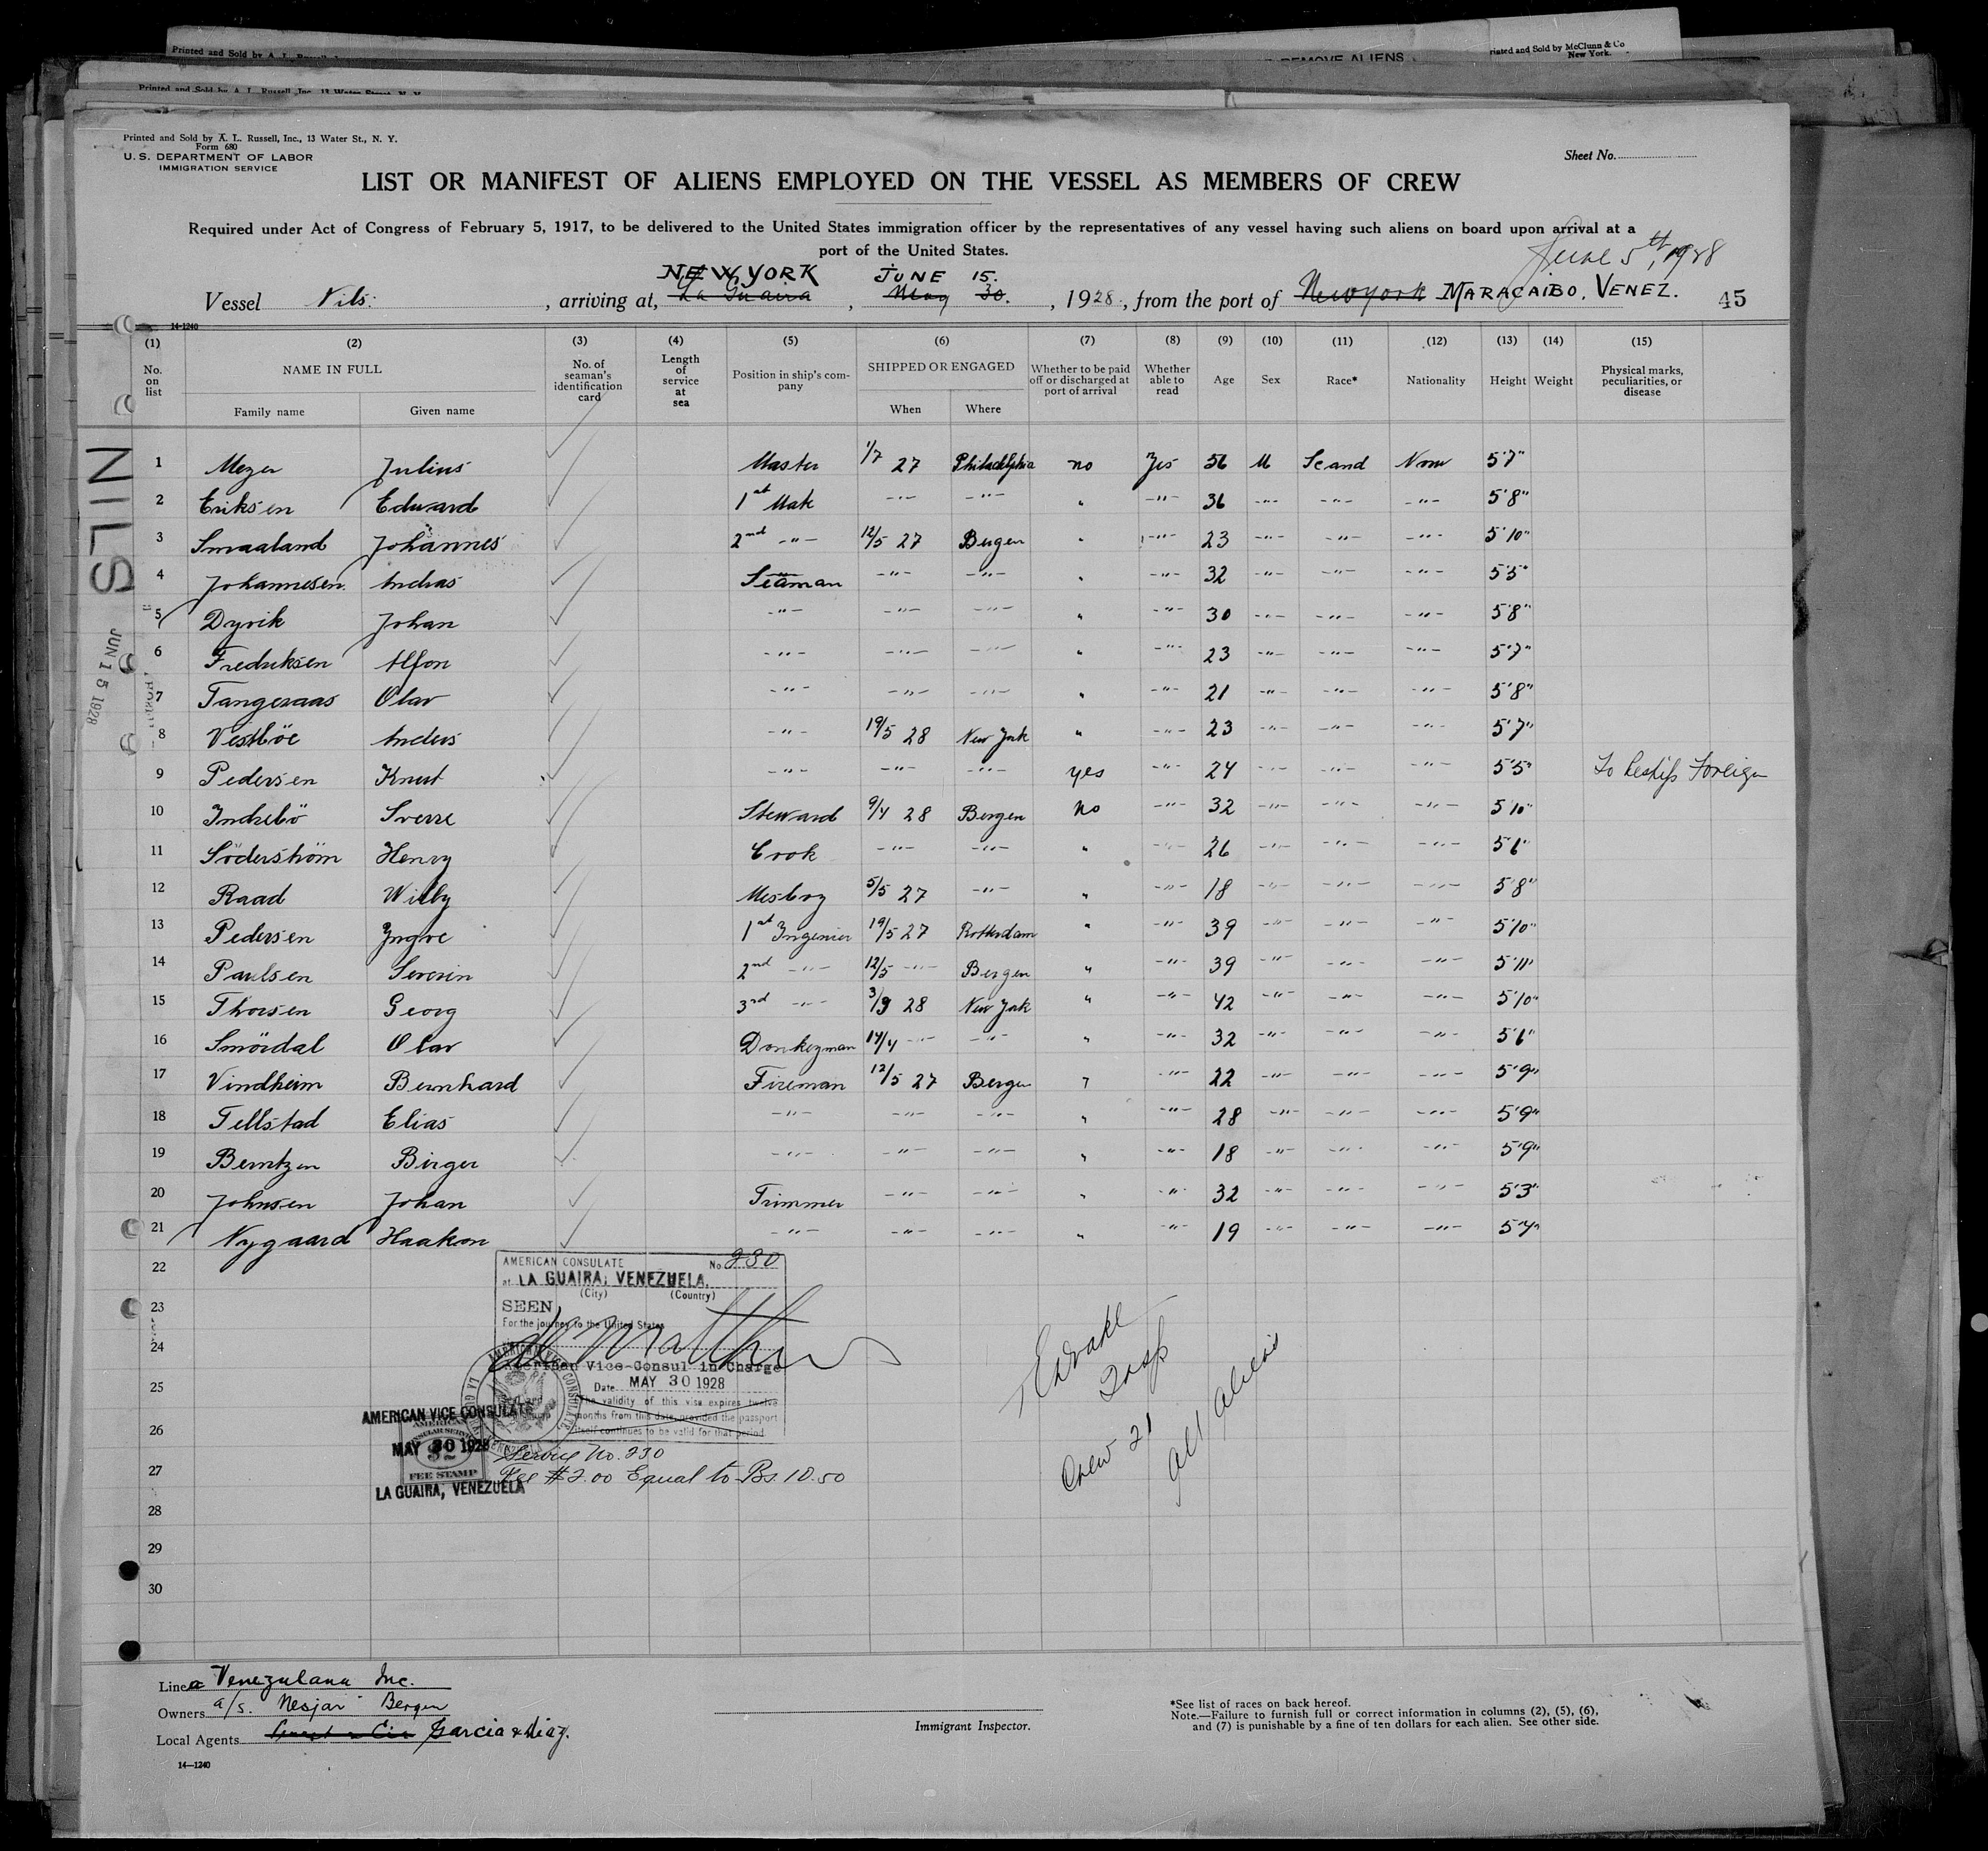 Printed and Sold by A. L. Russell, Inc.
REMOVE ALIENS
Printed and Sold by McClunn & Co
New York.
Printed and Sold by A. L. Russell, Inc., 13 Water Street, N. Y.
Printed and Sold by A. L. Russell, Inc., 13 Water St., N. Y.
Form 680
U. S. DEPARTMENT OF LABOR
IMMIGRATION SERVICE
Sheet No.
LIST OR MANIFEST OF ALIENS EMPLOYED ON THE VESSEL AS MEMBERS OF CREW
Required under Act of Congress of February 5, 1917, to be delivered to the United States immigration officer by the representatives of any vessel having such aliens on board upon arrival at a
port of the United States.
June 5th, 1928
NEW YORK JUNE 15.
Vessel Nils: , arriving at, La Guaira , May 30. , 1928, from the port of New york MARACAIBO, VENEZ. 45
14-1240
(1) (2) (3) (4) (5) (6) (7) (8) (9) (10) (11) (12) (13) (14) (15)
No. on list NAME IN FULL Family name Given name No. of seaman's identification card Length of service at sea Position in ship's company SHIPPED OR ENGAGED When Where Whether to be paid off or discharged at port of arrival Whether able to read Age Sex Race* Nationality Height Weight Physical marks, peculiarities, or disease
1 Meyer Julius Master 1/7 27 Philadelphia no Yes 56 M Scand Norw 5'7"
2 Eriksen Edward 1st Mate -"- -"- " -"- 36 -"- -"- -"- 5'8"
3 Smaaland Johannes 2nd -"- 12/5 27 Bergen " -"- 23 -"- -"- -"- 5'10"
4 Johannesen Andreas Seaman -"- -"- " -"- 32 -"- -"- -"- 5'5"
5 Dyvik Johan -"- -"- -"- " -"- 30 -"- -"- -"- 5'8"
6 Fredriksen Alfon -"- -"- -"- " -"- 23 -"- -"- -"- 5'7"
7 Tangeraas Olav -"- -"- -"- " -"- 21 -"- -"- -"- 5'8"
8 Vestböe Anders -"- 19/5 28 New York " -"- 23 -"- -"- -"- 5'7"
9 Pedersen Knut -"- -"- -"- yes -"- 24 -"- -"- -"- 5'5" To Reship Foreign
10 Indrebö Sverre Steward 9/4 28 Bergen no -"- 32 -"- -"- -"- 5'10"
11 Söderström Henry Cook -"- -"- " -"- 26 -"- -"- -"- 5'6"
12 Raad Willy Mesboy 5/5 27 -"- " -"- 18 -"- -"- -"- 5'8"
13 Pedersen Yngve 1st Ingenier 19/5 27 Rotterdam " -"- 39 -"- -"- -"- 5'10"
14 Paulsen Severin 2nd -"- 12/5 -"- Bergen " -"- 39 -"- -"- -"- 5'11"
15 Thorsen Georg 3rd -"- 3/9 28 New York " -"- 42 -"- -"- -"- 5'10"
16 Smördal Olav Donkeyman 14/4 -"- -"- " -"- 32 -"- -"- -"- 5'6"
17 Vindheim Bernhard Fireman 12/5 27 Bergen " -"- 22 -"- -"- -"- 5'9"
18 Tellstad Elias -"- -"- -"- " -"- 28 -"- -"- -"- 5'9"
19 Berntzen Birger -"- -"- -"- " -"- 18 -"- -"- -"- 5'9"
20 Johnsen Johan Trimmer -"- -"- " -"- 32 -"- -"- -"- 5'3"
21 Nygaard Haakon -"- -"- -"- " -"- 19 -"- -"- -"- 5'4"
22
23
24
25
26
27
28
29
30
NILS
JUN 15 1928
AMERICAN CONSULATE No. 230
at LA GUAIRA, VENEZUELA.
(City) (Country)
SEEN
For the journey to the United States
American Vice-Consul in Charge
Date MAY 30 1928
The validity of this visa expires twelve
months from this date, provided the passport
itself continues to be valid for that period
AMERICAN VICE CONSULATE
MAY 30 1928
LA GUAIRA, VENEZUELA
AMERICAN
CONSULAR SERVICE
$2
FEE STAMP
Service No. 230
Fee $2.00 Equal to Bs. 10.50
Insp
Crew 21
all aliens
Line a Venezulana Inc.
Owners a/s. Nesjar Bergen
Local Agents Garcia & Diaz.
14—1240
Immigrant Inspector.
*See list of races on back hereof.
Note.—Failure to furnish full or correct information in columns (2), (5), (6),
and (7) is punishable by a fine of ten dollars for each alien. See other side.